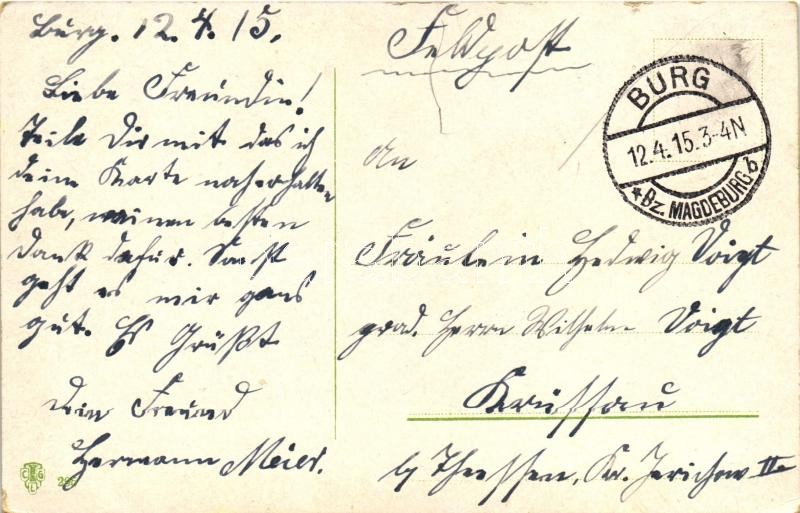 Burg. 12.4.15.
Liebe Freundin!
Teile Dir mit das ich
deine Karte erhalten
habe, meinen besten
Dank dafür. Sonst
geht es mir gans
gut. Es Grüßt
dein Freund
Hermann Meier.
Feldpost
An
Fräulein Hedwig Voigt
Herrn Wilhelm Voigt
Krüssau
b/ Theessen, Kr. Jerichow II
BURG
12.4.15.3-4N
*Bz. MAGDEBURG b